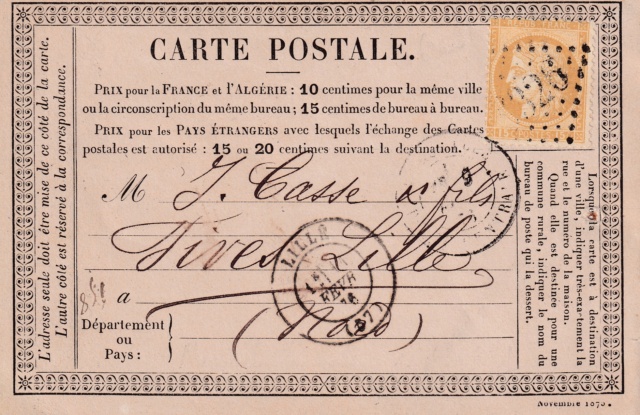 CARTE POSTALE.
PRIX pour la FRANCE et l'ALGÉRIE : 10 centimes pour la même ville
ou la circonscription du même bureau ; 15 centimes de bureau à bureau.
PRIX pour les PAYS ÉTRANGERS avec lesquels l'échange des Cartes
postales est autorisé : 15 ou 20 centimes suivant la destination.
M J. Casse & fils
Fives Lille
à
(Nord)
Département
ou
Pays :
L'adresse seule doit être mise de ce côté de la carte.
L'autre côté est réservé à la correspondance.
Lorsque la carte est à destination
d'une ville, indiquer très-exactement la
rue et le numéro de la maison.
Quand elle est destinée pour une
commune rurale, indiquer le nom du
bureau de poste qui la dessert.
LILLE
FEVR
76
(57)
Novembre 1875.